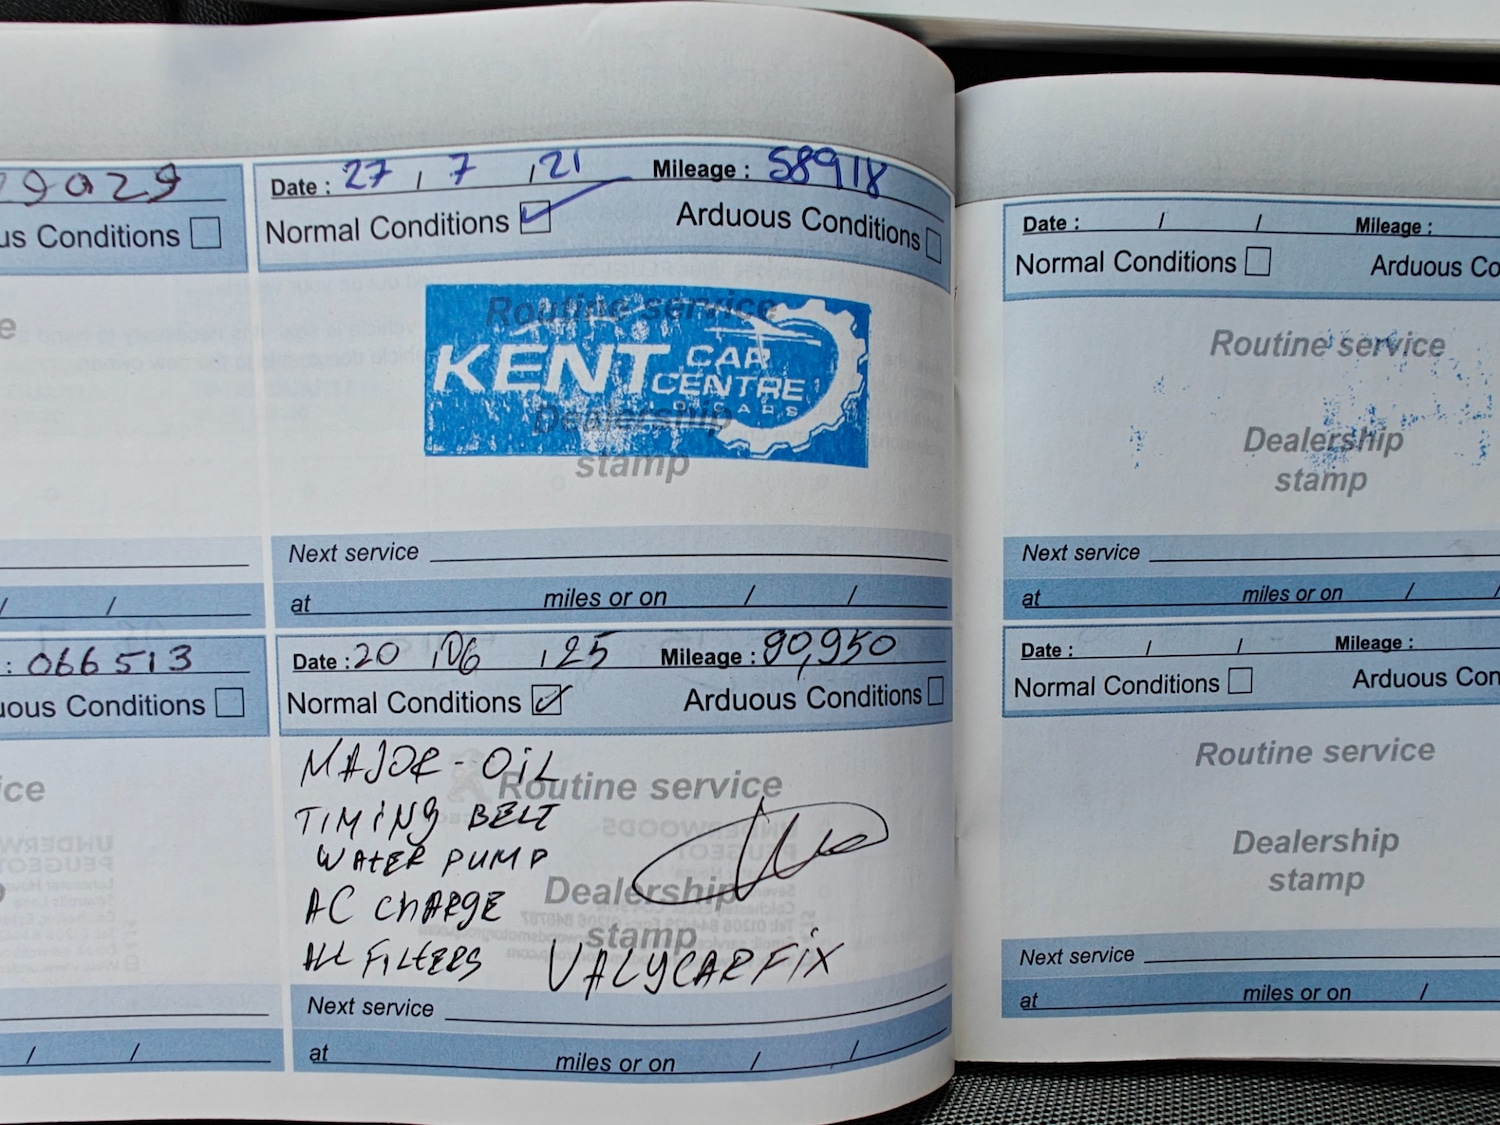 9029
us Conditions
e
/ /
: 066513
uous Conditions
ice
/ /
Date : 27 / 7 / 21 Mileage : 58918
Normal Conditions Arduous Conditions
Routine service
KENT CAR CENTRE
Dealership
stamp
Next service
at miles or on / /
Date : 20 / 06 / 25 Mileage : 90,950
Normal Conditions Arduous Conditions
MAJOR - OIL
Routine service
TIMING BELT
WATER PUMP
AC CHARGE
Dealership
stamp
ALL FILTERS VALYCARFIX
Next service
at miles or on / /
Date : / / Mileage :
Normal Conditions Arduous Co
Routine service
Dealership
stamp
Next service
at miles or on / /
Date : / / Mileage :
Normal Conditions Arduous Con
Routine service
Dealership
stamp
Next service
at miles or on /